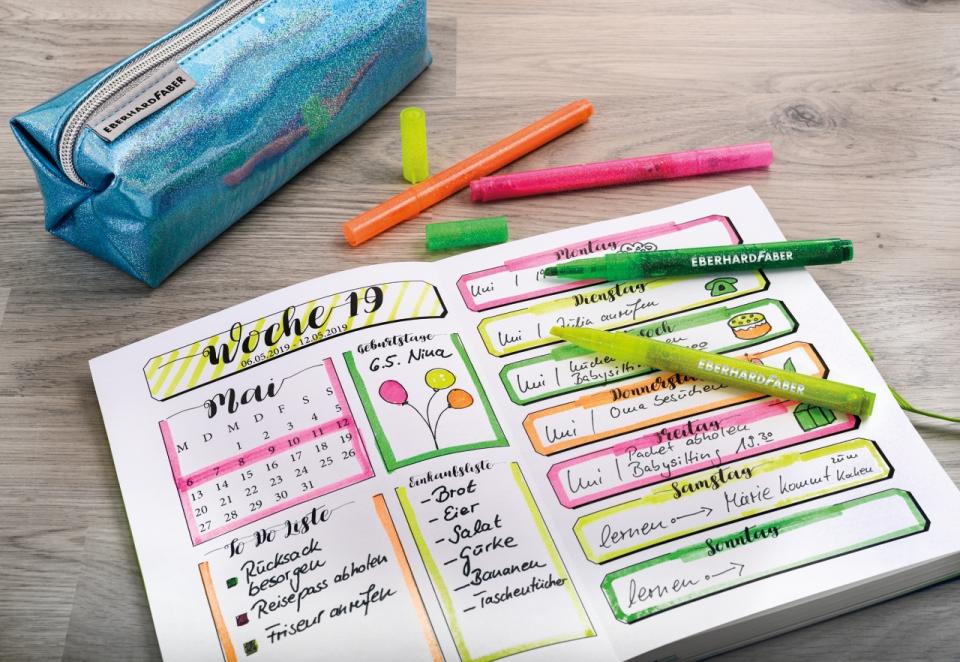 EBERHARDFABER
EBERHARDFABER
EBERHARDFABER
Woche 19
06.05.2019 - 12.05.2019
Mai
M D M D F S S
1 2 3 4 5
6 7 8 9 10 11 12
13 14 15 16 17 18 19
20 21 22 23 24 25 26
27 28 29 30 31
To Do Liste
Rücksack
besorgen
Reisepass abholen
Friseur anrufen
Geburtstage
6.5. Nina
Einkaufsliste
- Brot
- Eier
- Salat
- Gurke
- Bananen
- Taschentücher
Montag
Uni |
Dienstag
Uni | Julia anrufen
Uni |
Babysitt
Donnersta
Uni | Oma besuchen
Freitag
Uni | Packet abholen
Babysitting 19.30
Samstag
lernen → Marie kommt zum Kochen
Sonntag
lernen →